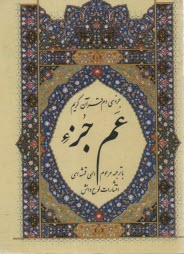 جزء سی ام قرآن کریم
عَم جُزء
با ترجمه مرحوم الهی قمشه ای
انتشارات دانش